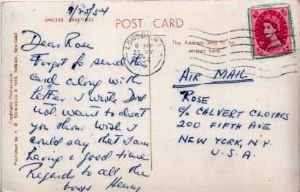 9/23/54
SINCERE GREETINGS
POST CARD
Dear Rose
Forgot to send the
card along with
letter I wrote. Did
not want to disit
you them. Wish I
could say that I am
having a good time
Regards to all the
boys Henry
LONDON
The Address only to be
written here
AIR MAIL
ROSE
c/o CALVERT CLOTHES
200 FIFTH AVE
NEW YORK, N.Y.
U.S.A.